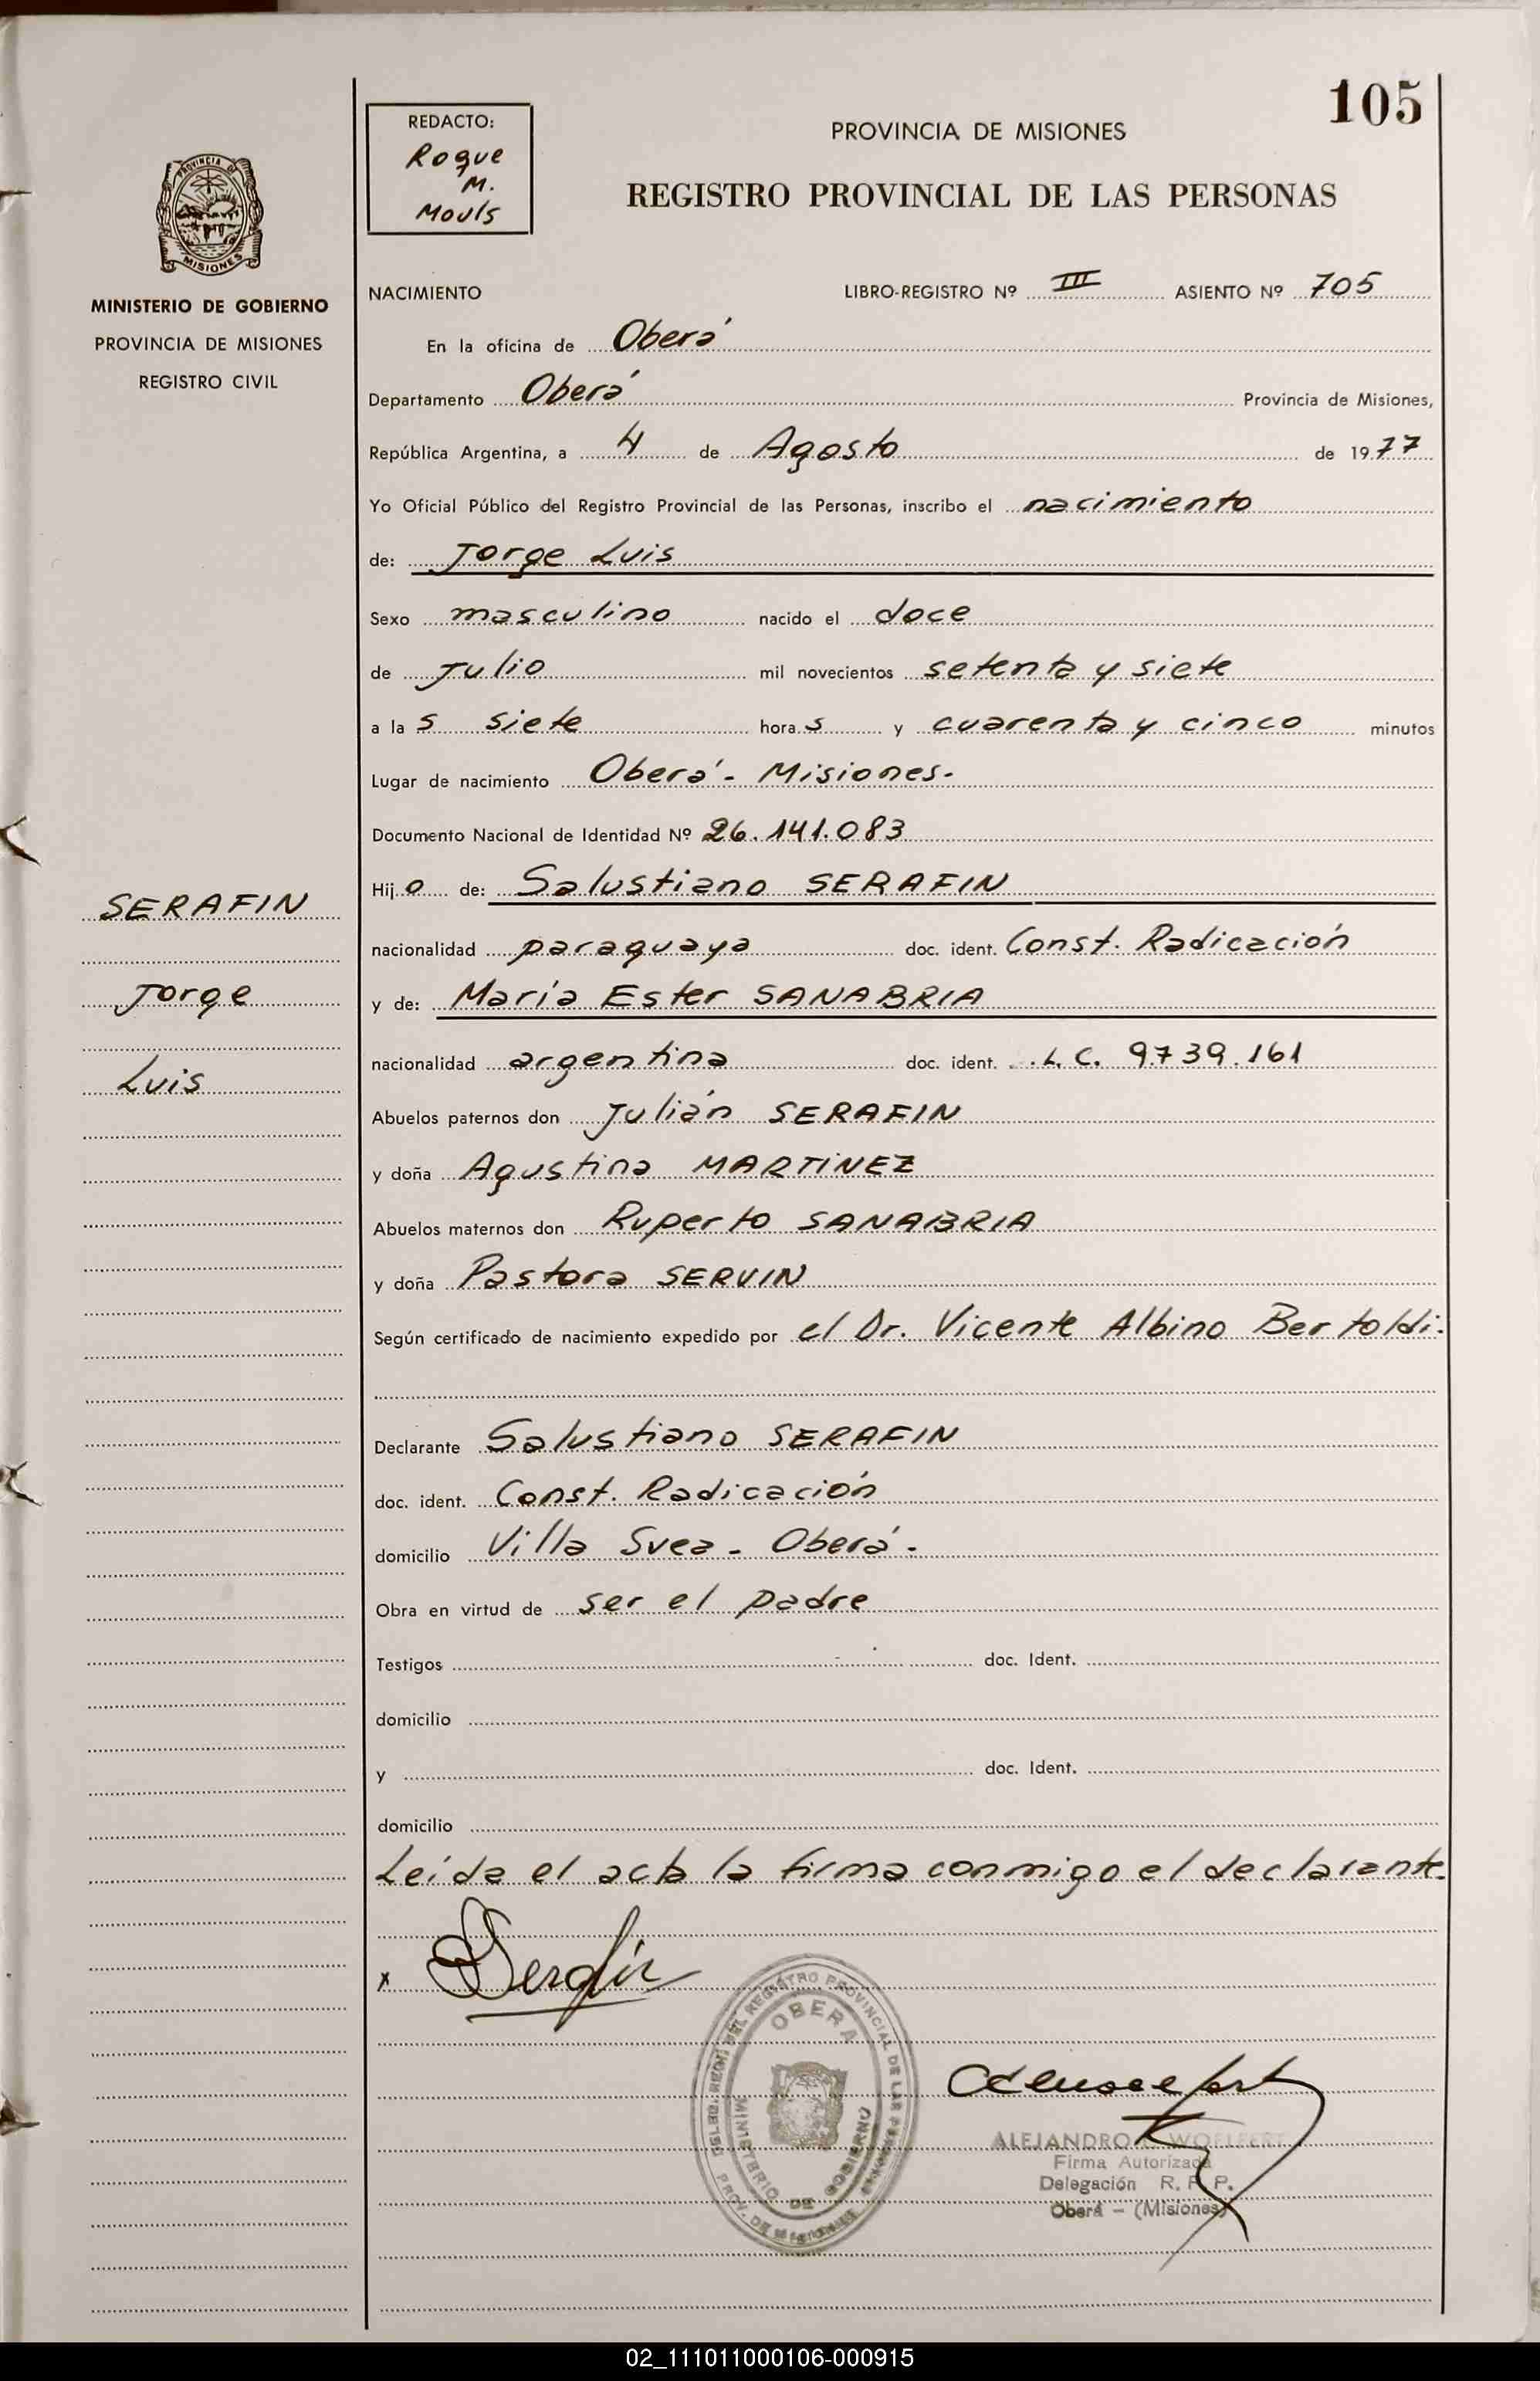 105
REDACTO:
Roque
M.
Mouls
PROVINCIA DE MISIONES
REGISTRO PROVINCIAL DE LAS PERSONAS
PROVINCIA DE
MISIONES
MINISTERIO DE GOBIERNO
PROVINCIA DE MISIONES
REGISTRO CIVIL
NACIMIENTO LIBRO-REGISTRO Nº III ASIENTO Nº 705
En la oficina de Oberá
Departamento Oberá Provincia de Misiones,
República Argentina, a 4 de Agosto de 1977
Yo Oficial Público del Registro Provincial de las Personas, inscribo el nacimiento
de: Jorge Luis
Sexo masculino nacido el doce
de Julio mil novecientos setenta y siete
a las siete horas y cuarenta y cinco minutos
Lugar de nacimiento Oberá - Misiones.-
Documento Nacional de Identidad Nº 26.141.083
Hijo de: Salustiano SERAFIN
nacionalidad paraguaya doc. ident. Const. Radicación
y de: María Ester SANABRIA
nacionalidad argentina doc. ident. L.C. 9.739.161
Abuelos paternos don Julián SERAFIN
y doña Agustina MARTINEZ
Abuelos maternos don Ruperto SANABRIA
y doña Pastora SERVIN
Según certificado de nacimiento expedido por el Dr. Vicente Albino Bertoldi.
Declarante Salustiano SERAFIN
doc. ident. Const. Radicación
domicilio Villa Svea - Oberá.-
Obra en virtud de ser el padre
Testigos doc. Ident.
domicilio
y doc. Ident.
domicilio
Leída el acta la firma conmigo el declarante.
x Serafín
SERAFIN
Jorge
Luis
REGISTRO PROVINCIAL DE LAS
OBERA
MINISTERIO DE GOBIERNO
PROV. DE MISIONES
ALEJANDRO WOELFERT
Firma Autorizada
Delegación R. P. P.
Oberá - (Misiones)
02_111011000106-000915